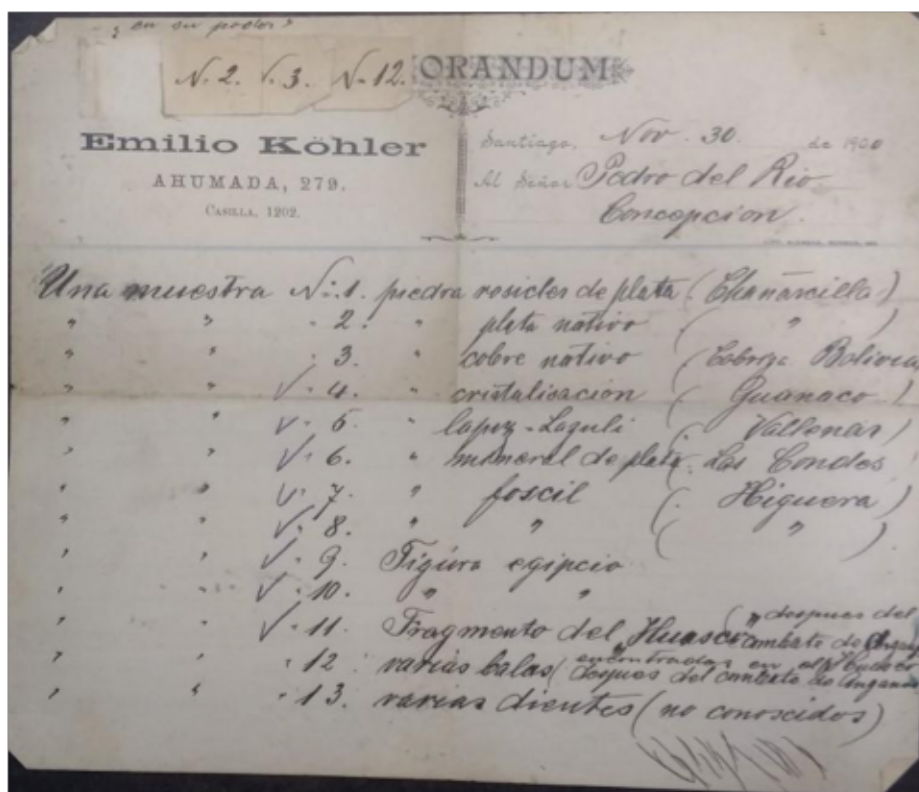 ¿ en su poder?
N. 2. N. 3. N. 12.
ORANDUM
Emilio Köhler
AHUMADA, 279.
CASILLA, 1202.
Santiago, Nov. 30. de 1900
Al Señor Pedro del Rio
Concepcion.
Una muestra N: 1. piedra rosicler de plata (Chañarcilla)
" " " 2. " plata nativo ( " )
" " " 3. " cobre nativo (Cobriza Bolivia
" " √ " 4. " cristalisacion ( Guanaco )
" " √ " 5. " lapiz-Lazuli ( Vallenar )
" " √ " 6. " mineral de plata. Las Condes
" " √ " 7. " foscil ( Higuera )
" " √ " 8. " " ( " )
" " √ " 9. Figura egipcio
" " √ " 10. " "
" " √ " 11. Fragmento del Huascar ( " despues del combate de
" " " 12. varias balas ( encontradas en el Huascar despues del combate de Angamos
" " " 13. varias dientes (no conoscidos)